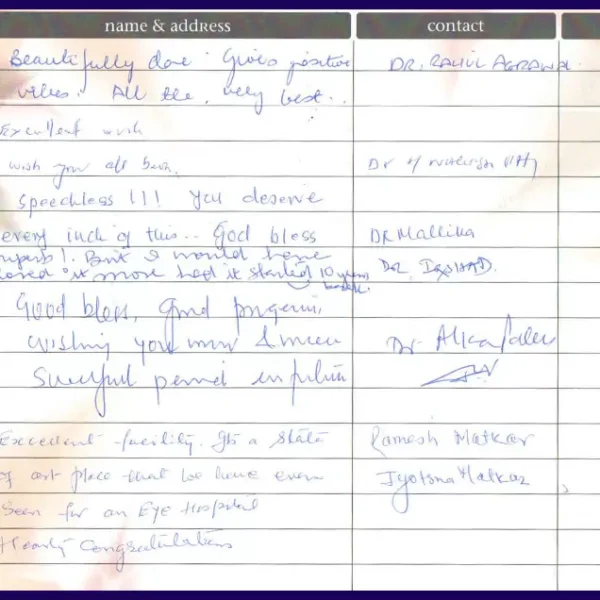 name & address contact
Beautifully done. Gives positive DR. RAHUL AGRAWAL
vibes. All the very best..
Excellent work
wish you all best. Dr
Speechless !!! You deserve
every inch of this... God bless DR Mallika
Superb!. But I would have
loved it more had it started 10 years DR. IRSHAD.
back.
Good bless, Good
wishing you more & more Dr. Alka
Successful period in future
Excellent facility. Its a State Ramesh Matkar
of art place that we have ever Jyotsna Matkar
Seen for an Eye Hospital
Hearty Congratulations